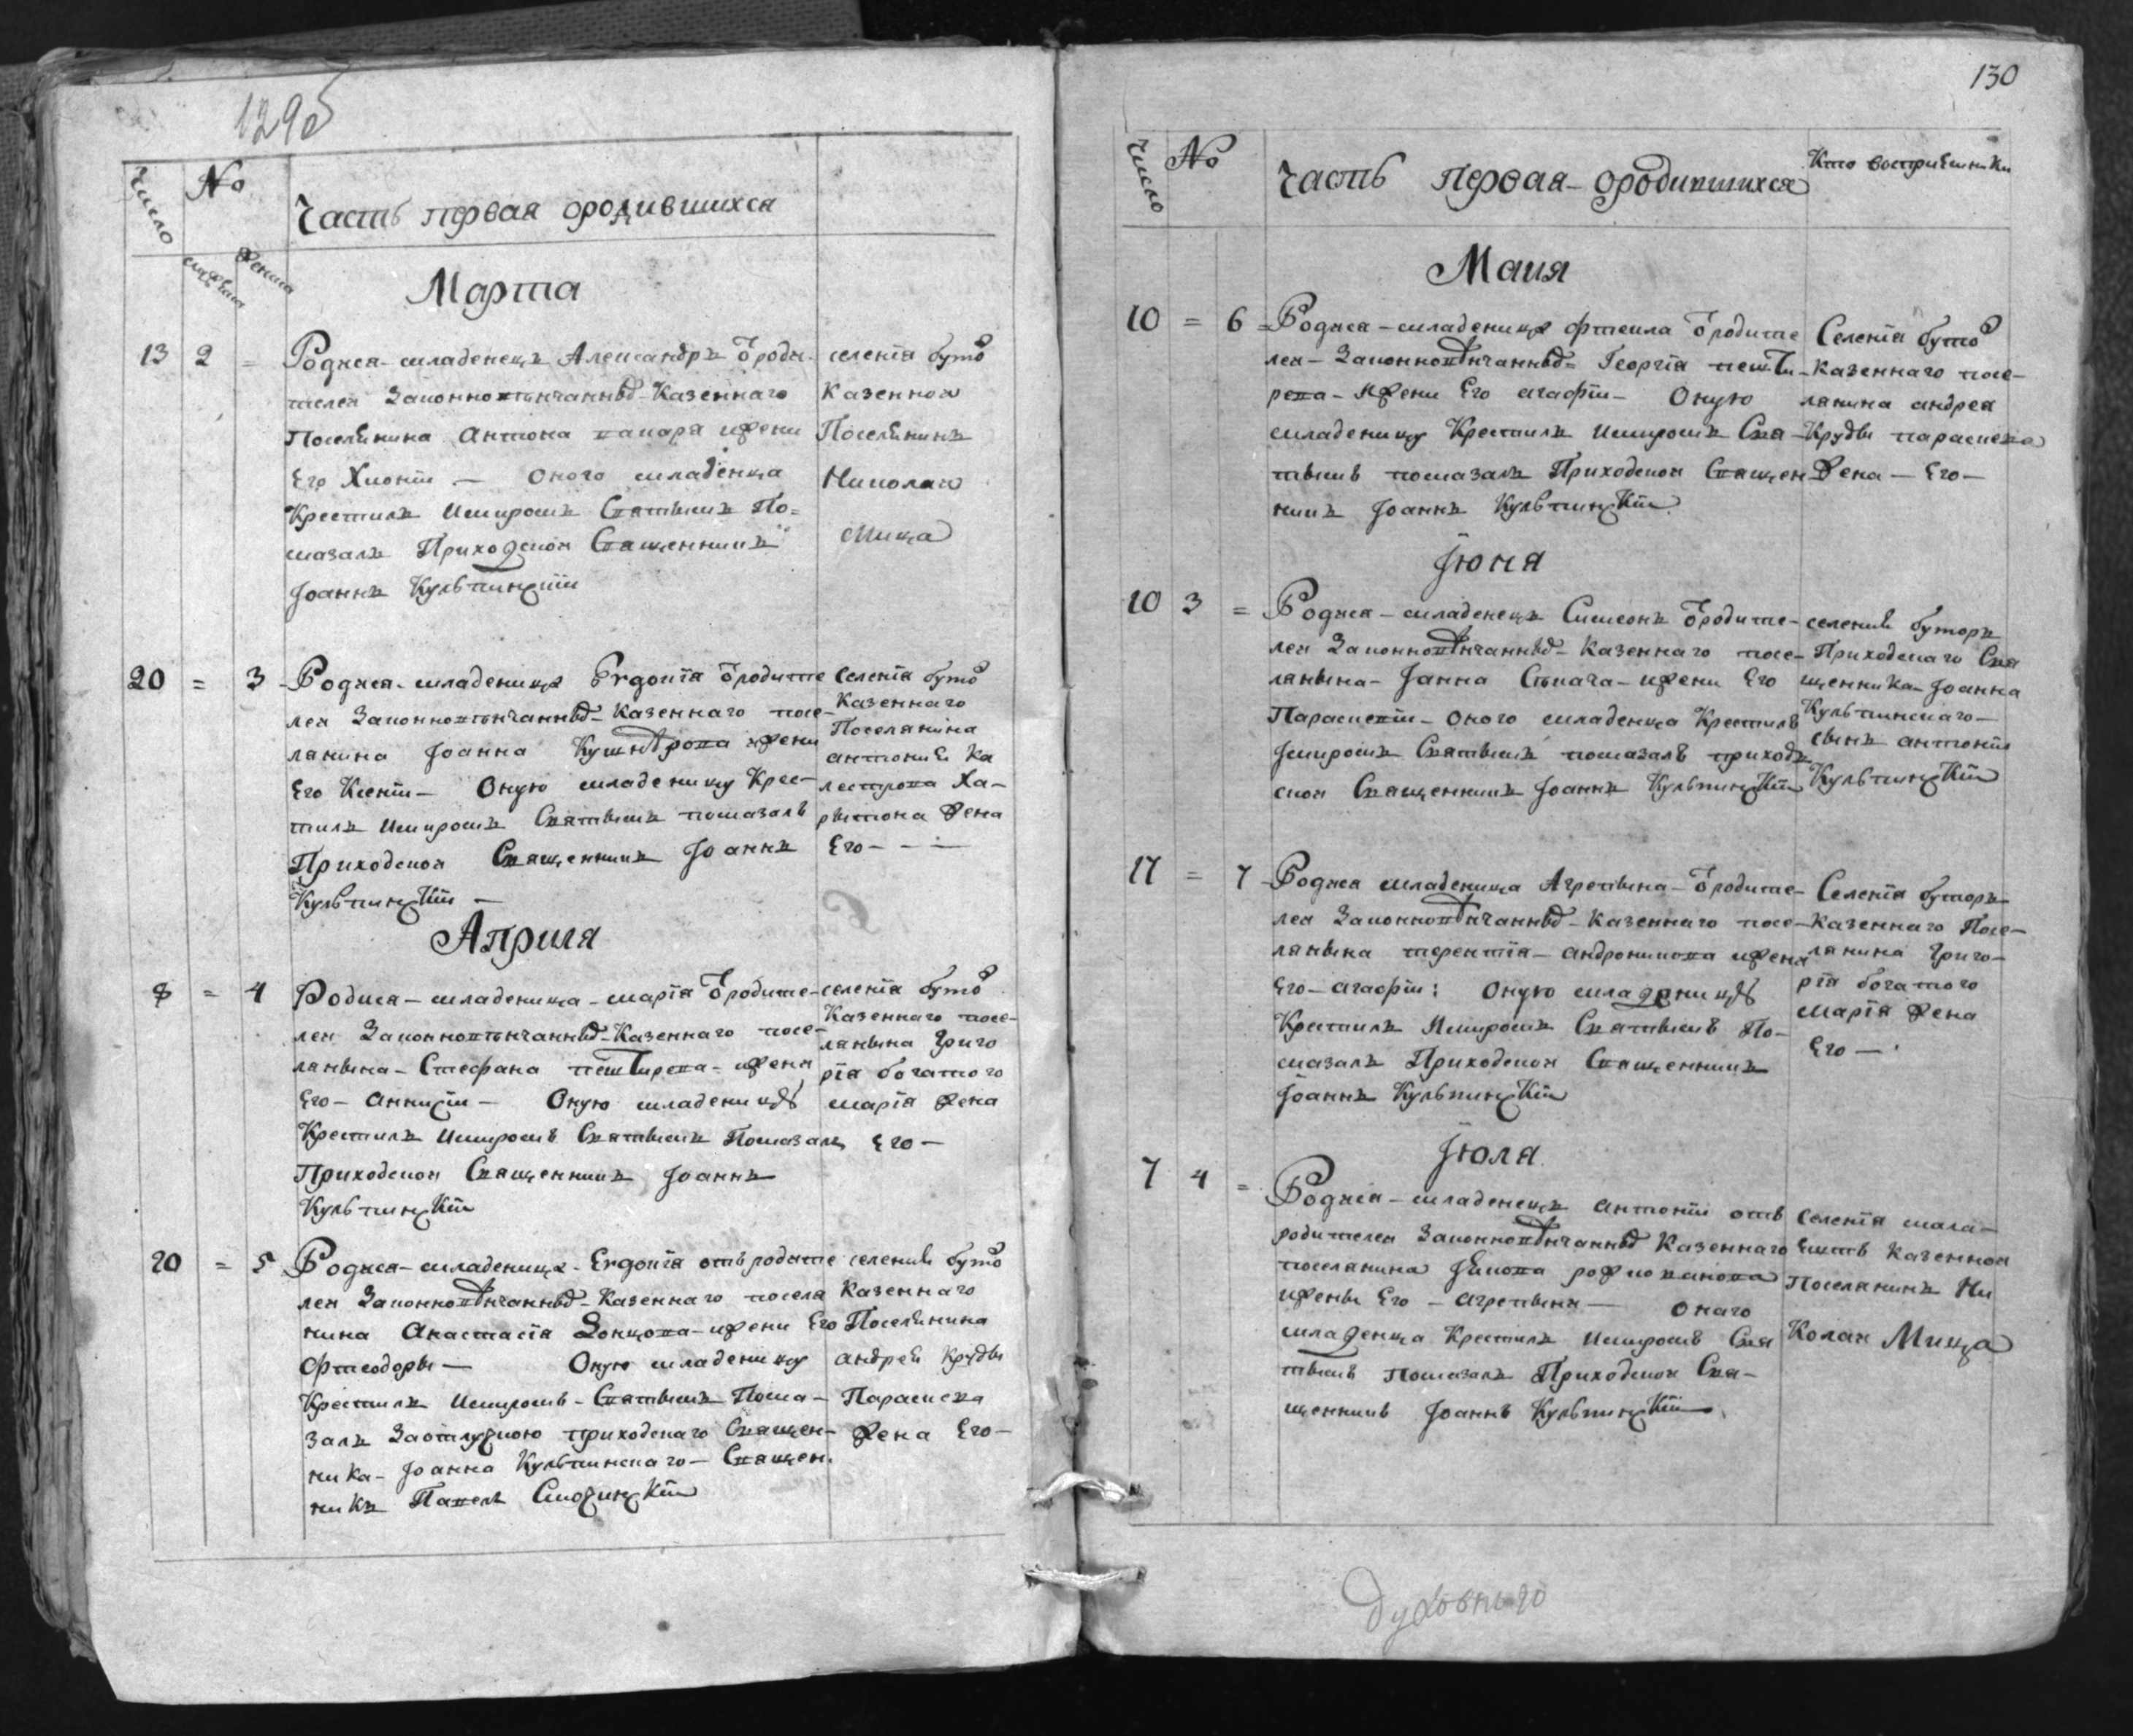 129об
Число
№
Часть первая ородившихся
мужеска
женска
Марта
13 2 =
Родися младенецъ Александръ ѿ роди-
телей Законновѣнчанныхъ Казеннаго
Поселянина Антона жени
Его Хионіи — оного младенца
Крестилъ Имиромъ Святымъ По=
мазалъ Приходской Священникъ
Іоаннъ Кульчицкій
селенія буто
Казенной
Поселянинъ
Николай
Мица
20 = 3
Родися младеница Евдокія ѿ родите
лей Законновѣнчанныхъ Казеннаго посе-
лянина Іоанна жени
Его Ксеніи — Оную младеницу Крес-
тилъ Имиромъ Святымъ помазалъ
Приходской Священникъ Іоаннъ
Кульчицкій —
Селенія буто
Казеннаго
Поселянина
антоній Ка
лестрова Ха-
ритона жена
Его — — —
Априля
8 = 4
Родися — младеница — марія ѿ родите-
лей Законновѣнчанныхъ Казеннаго посе-
лянина — Стефана — ижени
Его — — Оную младеницу
Крестилъ Имиромъ Святымъ Помазалъ
Приходской Священникъ Іоаннъ
Кульчицкій
селенія буто
Казеннаго посе-
лянина Григо
рія богатого
марія жена
Его —
20 = 5
Родися — младеница Евдокія отъ родите
лей Законновѣнчанныхъ Казеннаго поселя
нина Анастасія Донцова — ижени Его
Фтеодоры — Оную младеницу
Крестилъ Имиромъ — Святымъ Пома-
залъ Заотлучкою приходскаго Священ-
ника — Іоанна Кульчинскаго — Священ-
никъ Павелъ
селеній буто
Казеннаго
Поселянина
андрей Крудвы
Параскева
жена Его —
130
Число
№
Часть Первая ородившихся
Кто восприемники
Маия
10 = 6
Родися — младеница фтекла ѿ родите
лей — Законновѣнчанныхъ Георгія
— ижени Его агафіи — Оную
младеницу Крестилъ Имиромъ Свя-
тымъ помазалъ Приходской Священ
никъ Іоаннъ Кульчицкій.
Селенія буто
казеннаго посе-
лянина андрея
Крудвы параскева
Жена — Его —
Іюня
10 3 =
Родися — младенецъ Симеонъ ѿ родите-
лей Законновѣнчанныхъ Казеннаго посе-
лянина — Іанна — ижени Его
Параскевіи — оного младенца Крестилъ
Імиромъ Святымъ помазалъ приход-
ской Священникъ Іоаннъ Кульчицкій
селеній буторъ
Приходскаго Свя
щенника — Іоанна
Кульчинскаго —
сынъ антоній
Кульчицкій
17 = 7
Родися младеница Агрепина — ѿ родите-
лей Законновѣнчанныхъ Казеннаго посе-
лянина терентія — андроникова ижена
Его — агафіи: Оную младеницу
Крестилъ Имиромъ Святымъ По-
мазалъ Приходской Священникъ
Іоаннъ Кульчицкій
Селенія буторъ
Казеннаго Посе-
лянина Григо-
рія богатого
марія жена
Его —
Іюля
7 4 =
Родися — младенецъ антоній отъ
родителей Законновѣнчанныхъ Казеннаго
поселянина
ижены Его — агрепины — онаго
младенца Крестилъ Имиромъ Свя
тымъ Помазалъ Приходской Свя-
щенникъ Іоаннъ Кульчицкій
Селенія мала-
ештъ казенной
Поселянинъ Ни
колай Мица
духовнаго